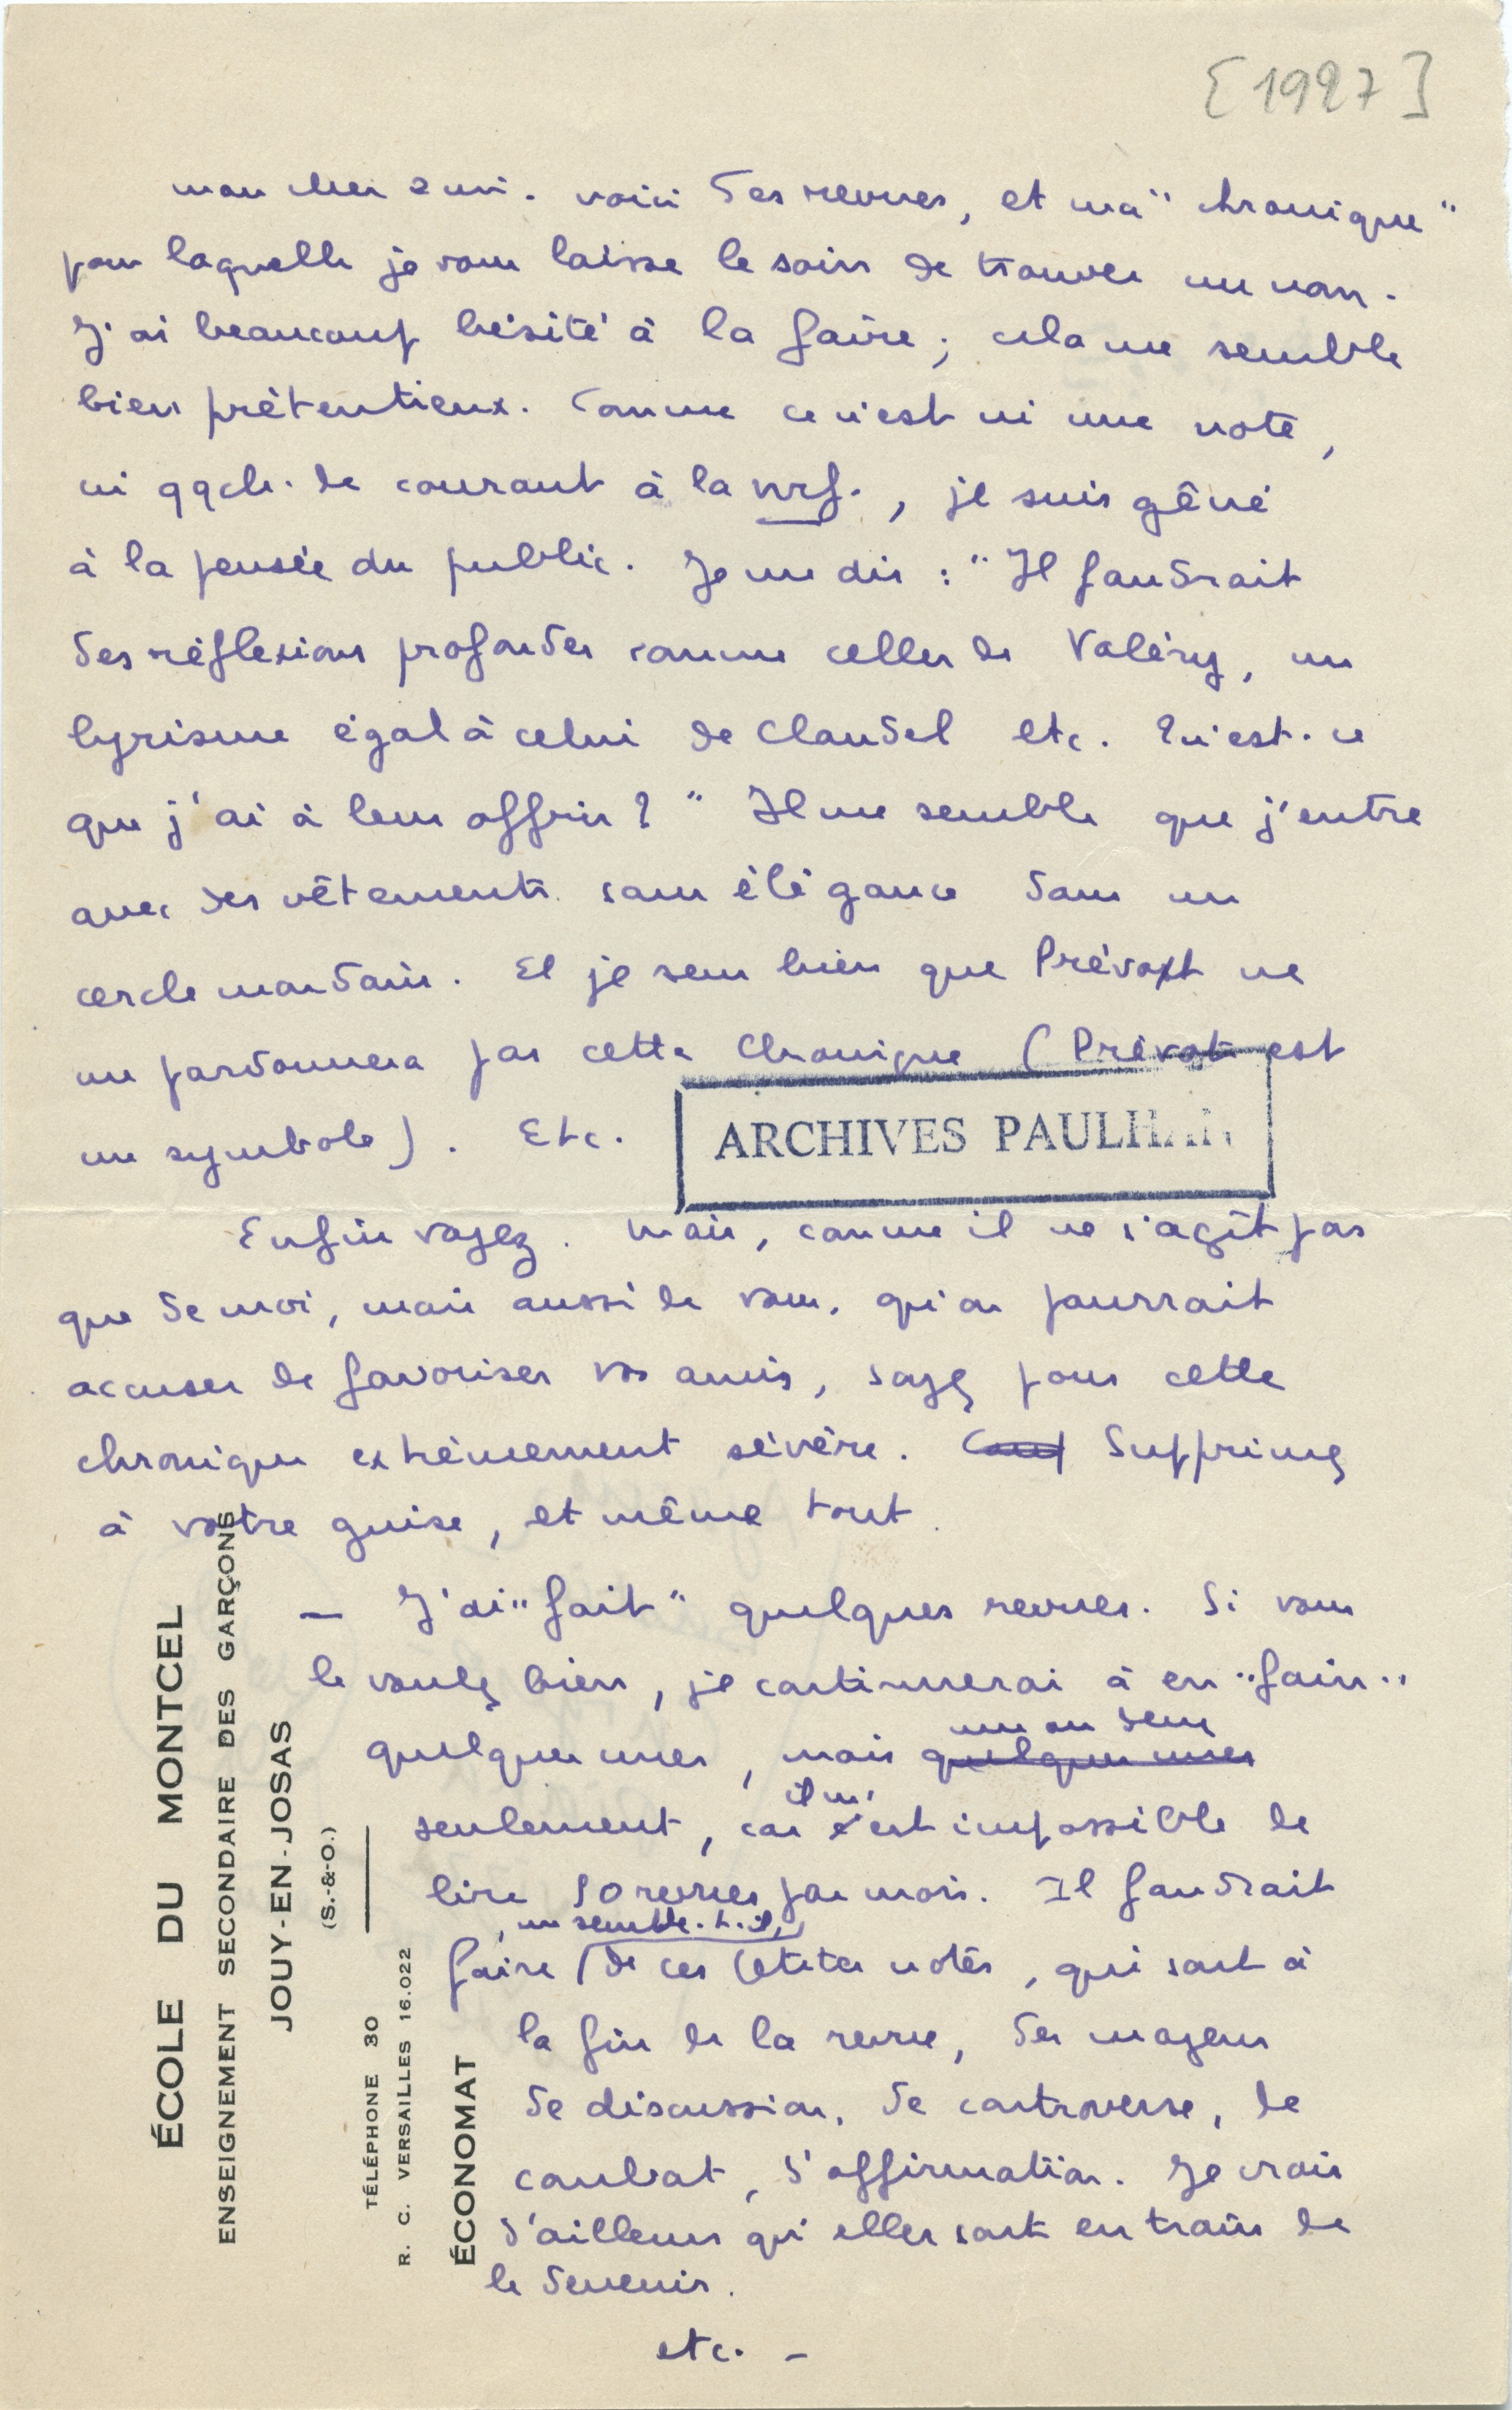 [1927]
mon cher ami. voici des revues, et ma "chronique"
pour laquelle je vous laisse le soin de trouver un nom.
J'ai beaucoup hésité à la faire ; cela me semble
bien prétentieux. Comme ce n'est ni une note,
ni qqch. de courant à la nrf., je suis gêné
à la pensée du public. Je me dis : "Il faudrait
des réflexions profondes comme celles de Valéry, un
lyrisme égal à celui de Claudel etc. Qu'est-ce
que j'ai à leur offrir ?" Il me semble que j'entre
avec des vêtements sans élégance dans un
cercle mondain. Et je sens bien que Prévost ne
me pardonnera pas cette chronique (Prévost est
un symbole). Etc.
ARCHIVES PAULHAN
Enfin voyez. Mais, comme il ne s'agit pas
que de moi, mais aussi de vous, qu'on pourrait
accuser de favoriser vos amis, soyez pour cette
chronique extrêmement sévère. Supprimez
à votre guise, et même tout.
— J'ai "fait" quelques revues. Si vous
le voulez bien, je continuerai à en "faire"
quelques unes, mais quelques unes
une ou deux
seulement, car c'est impossible de
il m'
lire 50 revues par mois. Il faudrait
, me semble-t-il,
faire (de ces petites notes, qui sont à
la fin de la revue, des moyens
de discussion, de controverse, de
combat, d'affirmation. Je crois
d'ailleurs qu'elles sont en train de
le devenir.
etc. –
ÉCOLE DU MONTCEL
ENSEIGNEMENT SECONDAIRE DES GARÇONS
JOUY-EN-JOSAS
(S.-&-O.)
TÉLÉPHONE 30
R. C. VERSAILLES 16.022
ÉCONOMAT